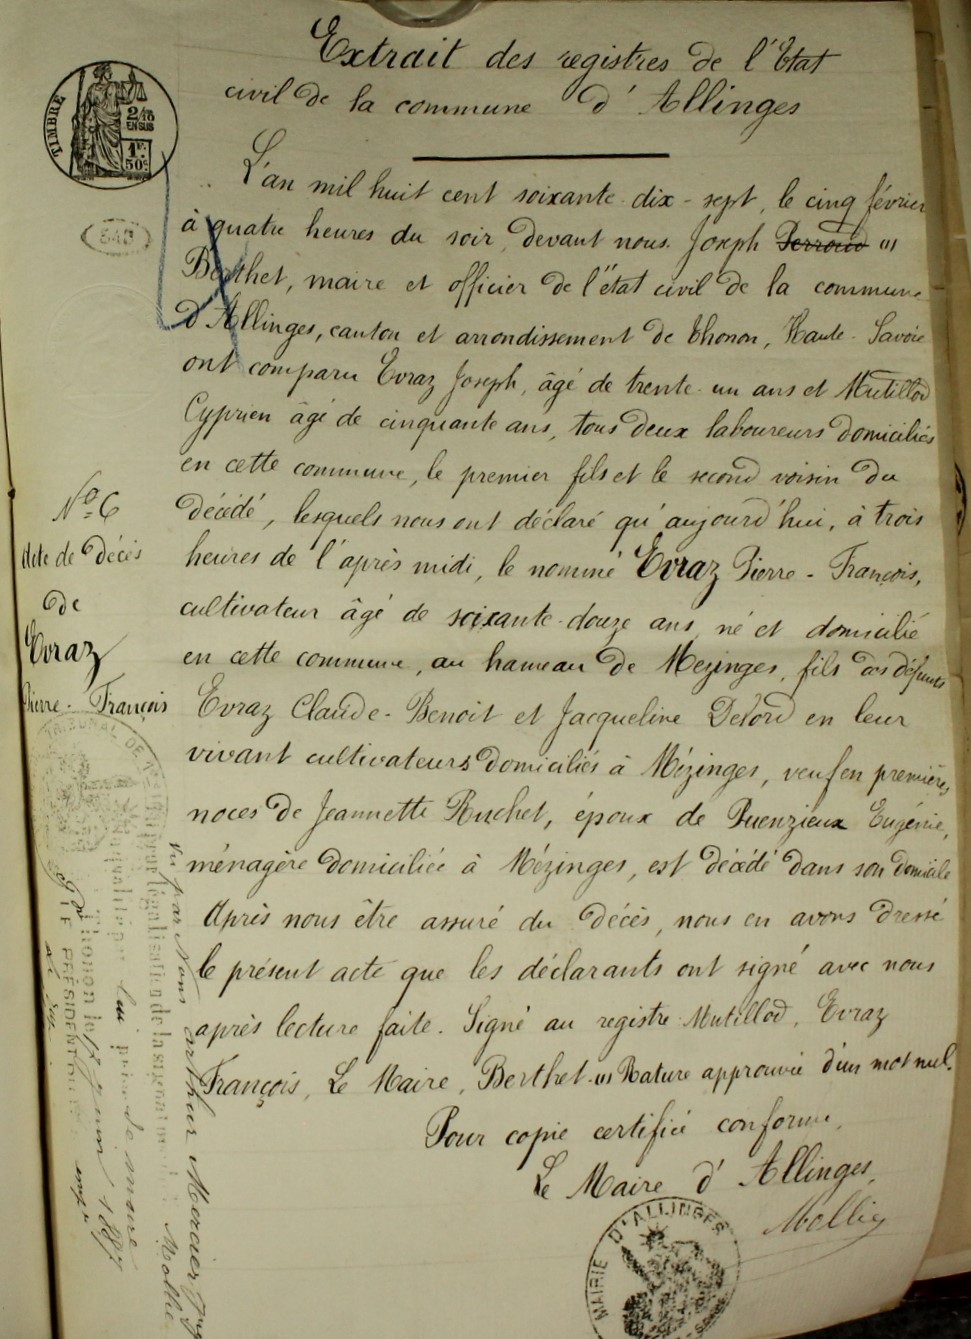 Extrait des registres de l'Etat
civil de la commune d'Allinges
TIMBRE
2/10
EN SUS
1F.
50c.
L'an mil huit cent soixante-dix-sept, le cinq février
à quatre heures du soir, devant nous Joseph Perroud (1)
Berthet, maire et officier de l'état civil de la commune
d'Allinges, canton et arrondissement de Thonon, Haute-Savoie
ont comparu Evraz Joseph, âgé de trente-un ans et Mutillod
Cyprien âgé de cinquante ans, tous deux laboureurs domiciliés
en cette commune, le premier fils et le second voisin du
décédé, lesquels nous ont déclaré qu'aujourd'hui, à trois
heures de l'après midi, le nommé Evraz Pierre-François,
cultivateur âgé de soixante-douze ans, né et domicilié
en cette commune, au hameau de Mezinges, fils des défunts
Evraz Claude-Benoit et Jacqueline Deford en leur
vivant cultivateurs domiciliés à Mézinges, veuf en premières
noces de Jeannette Ruchet, époux de Quenzieux Eugénie,
ménagère domiciliée à Mézinges, est décédé dans son domicile
Après nous être assuré du décès, nous en avons dressé
le présent acte que les déclarants ont signé avec nous
après lecture faite. Signé au registre Mutillod, Evraz
François, Le Maire, Berthet. (1) Rature approuvée d'un mot nul.
Pour copie certifiée conforme,
Le Maire d'Allinges,
MAIRIE D'ALLINGES
No 6
Acte de décès
de
Evraz
Pierre-François
TRIBUNAL DE
Vu par Nous Arthur Mercier Juge
pour légalisation de la signature
Thonon le juin 1887
PRÉSIDENT